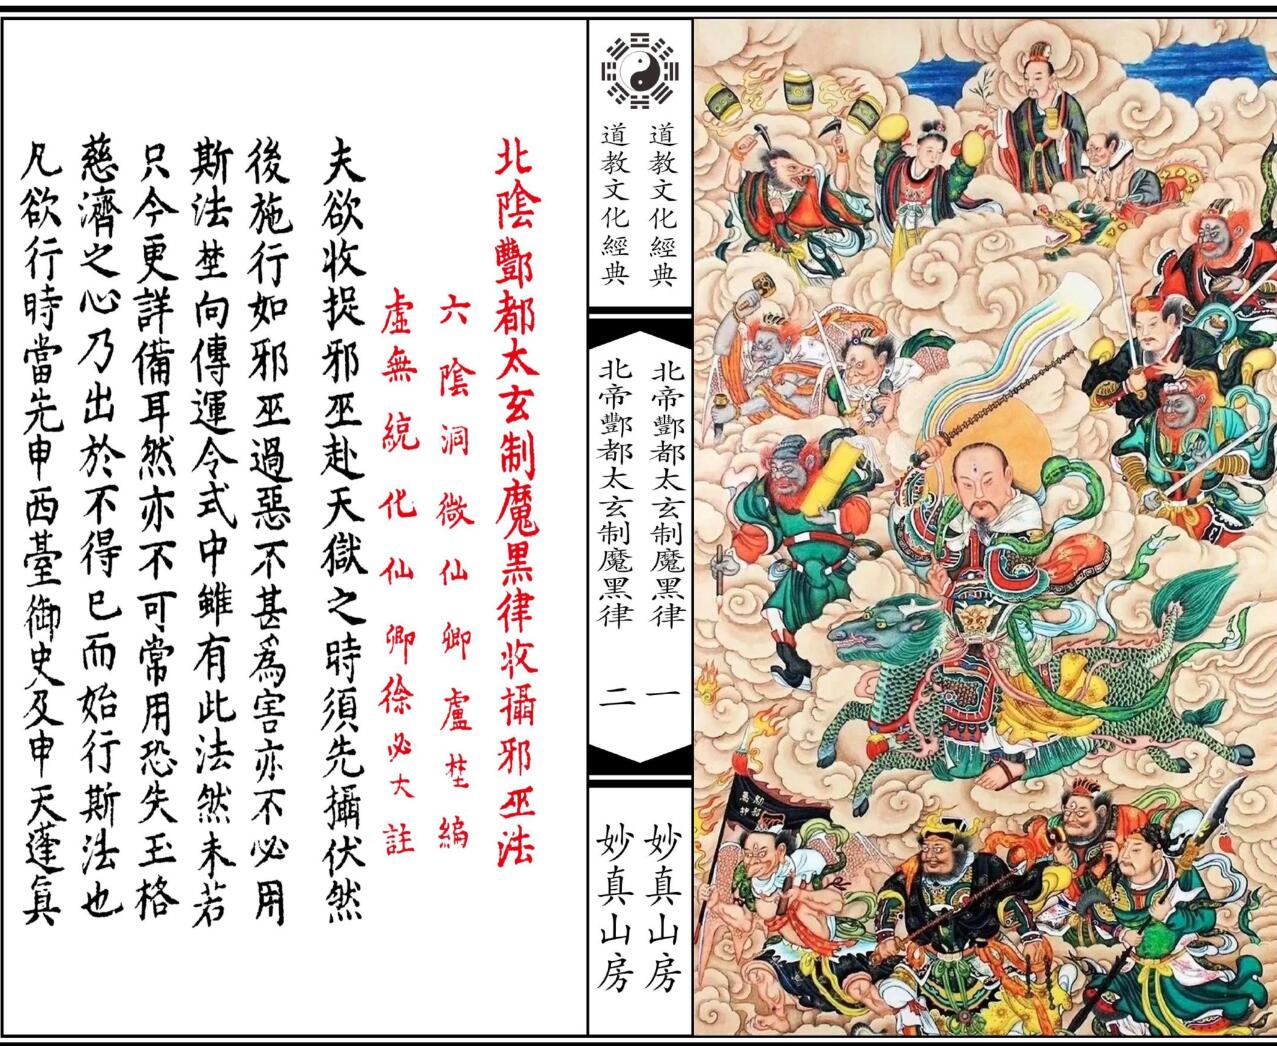 道教文化經典
北帝酆都太玄制魔黑律
一
妙真山房
道教文化經典
北帝酆都太玄制魔黑律
二
妙真山房
北陰酆都太玄制魔黑律收攝邪巫法
六陰洞微仙卿盧埜編
虛無統化仙卿徐必大註
夫欲收捉邪巫赴天獄之時須先攝伏然
後施行如邪巫過惡不甚爲害亦不必用
斯法埜向傳運令式中雖有此法然未若
只今更詳備耳然亦不可常用恐失玉格
慈濟之心乃出於不得已而始行斯法也
凡欲行時當先申西臺御史及申天蓬眞